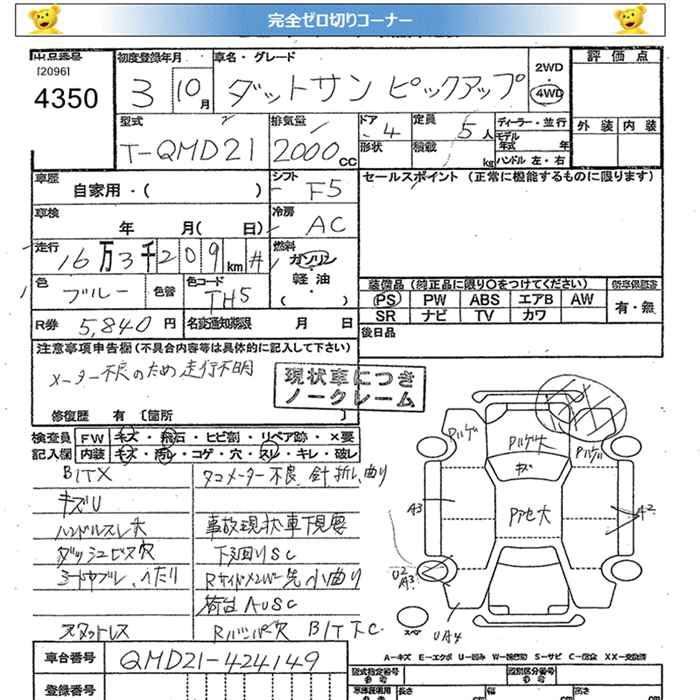 完全ゼロ切りコーナー
出品番号
[2096]
4350
初度登録年月
3 10 月
車名・グレード
ダットサン ピックアップ
2WD
4WD
評価点
外装 内装
型式
T-QMD21
排気量
2000 cc
ドア
4
形状
定員
5 人
積載
kg
ディーラー・並行
モデル
年式 年
ハンドル 左・右
車歴
自家用・( )
シフト
F5
セールスポイント (正常に機能するものに限ります)
車検
年 月( 日)
冷房
AC
走行
16 万 3 千 2 0 9 km #
燃料
ガソリン
軽油
( )
色
ブルー
色替
色コード
TH5
装備品 (純正品に限り○をつけてください)
新車保証書
PS PW ABS エアB AW
SR ナビ TV カワ
有・無
R券
5,840 円
名変通知期限 月 日
後日品
注意事項申告欄 (不具合内容等は具体的に記入して下さい)
メーター不良のため走行不明
現状車につき
ノークレーム
修復歴 有 [箇所 ]
検査員
記入欄
FW キズ・飛石・ヒビ割・リペア跡・×要
内装 キズ・汚レ・コゲ・穴・スレ・キレ・破レ
BITX
タコメーター不良 針折レ曲り
キズU
ハンドルスレ大
事故現状車下見要
ダッシュビス穴
下回りSC
荷台AUSC
スタットレス
Rバンパー穴 BITTC
Pハゲ
Pハゲ大
Pハゲ
キズ
Pアセ大
A3
A2
U2
A3
UA4
スペア
A-キズ E-エクボ U-凹み W-補修跡 S-サビ C-腐食 XX-交換済
車台番号
QMD21-424149
登録番号
型式指定番号
参考
類別区分番号
参考
長さ
幅
高さ